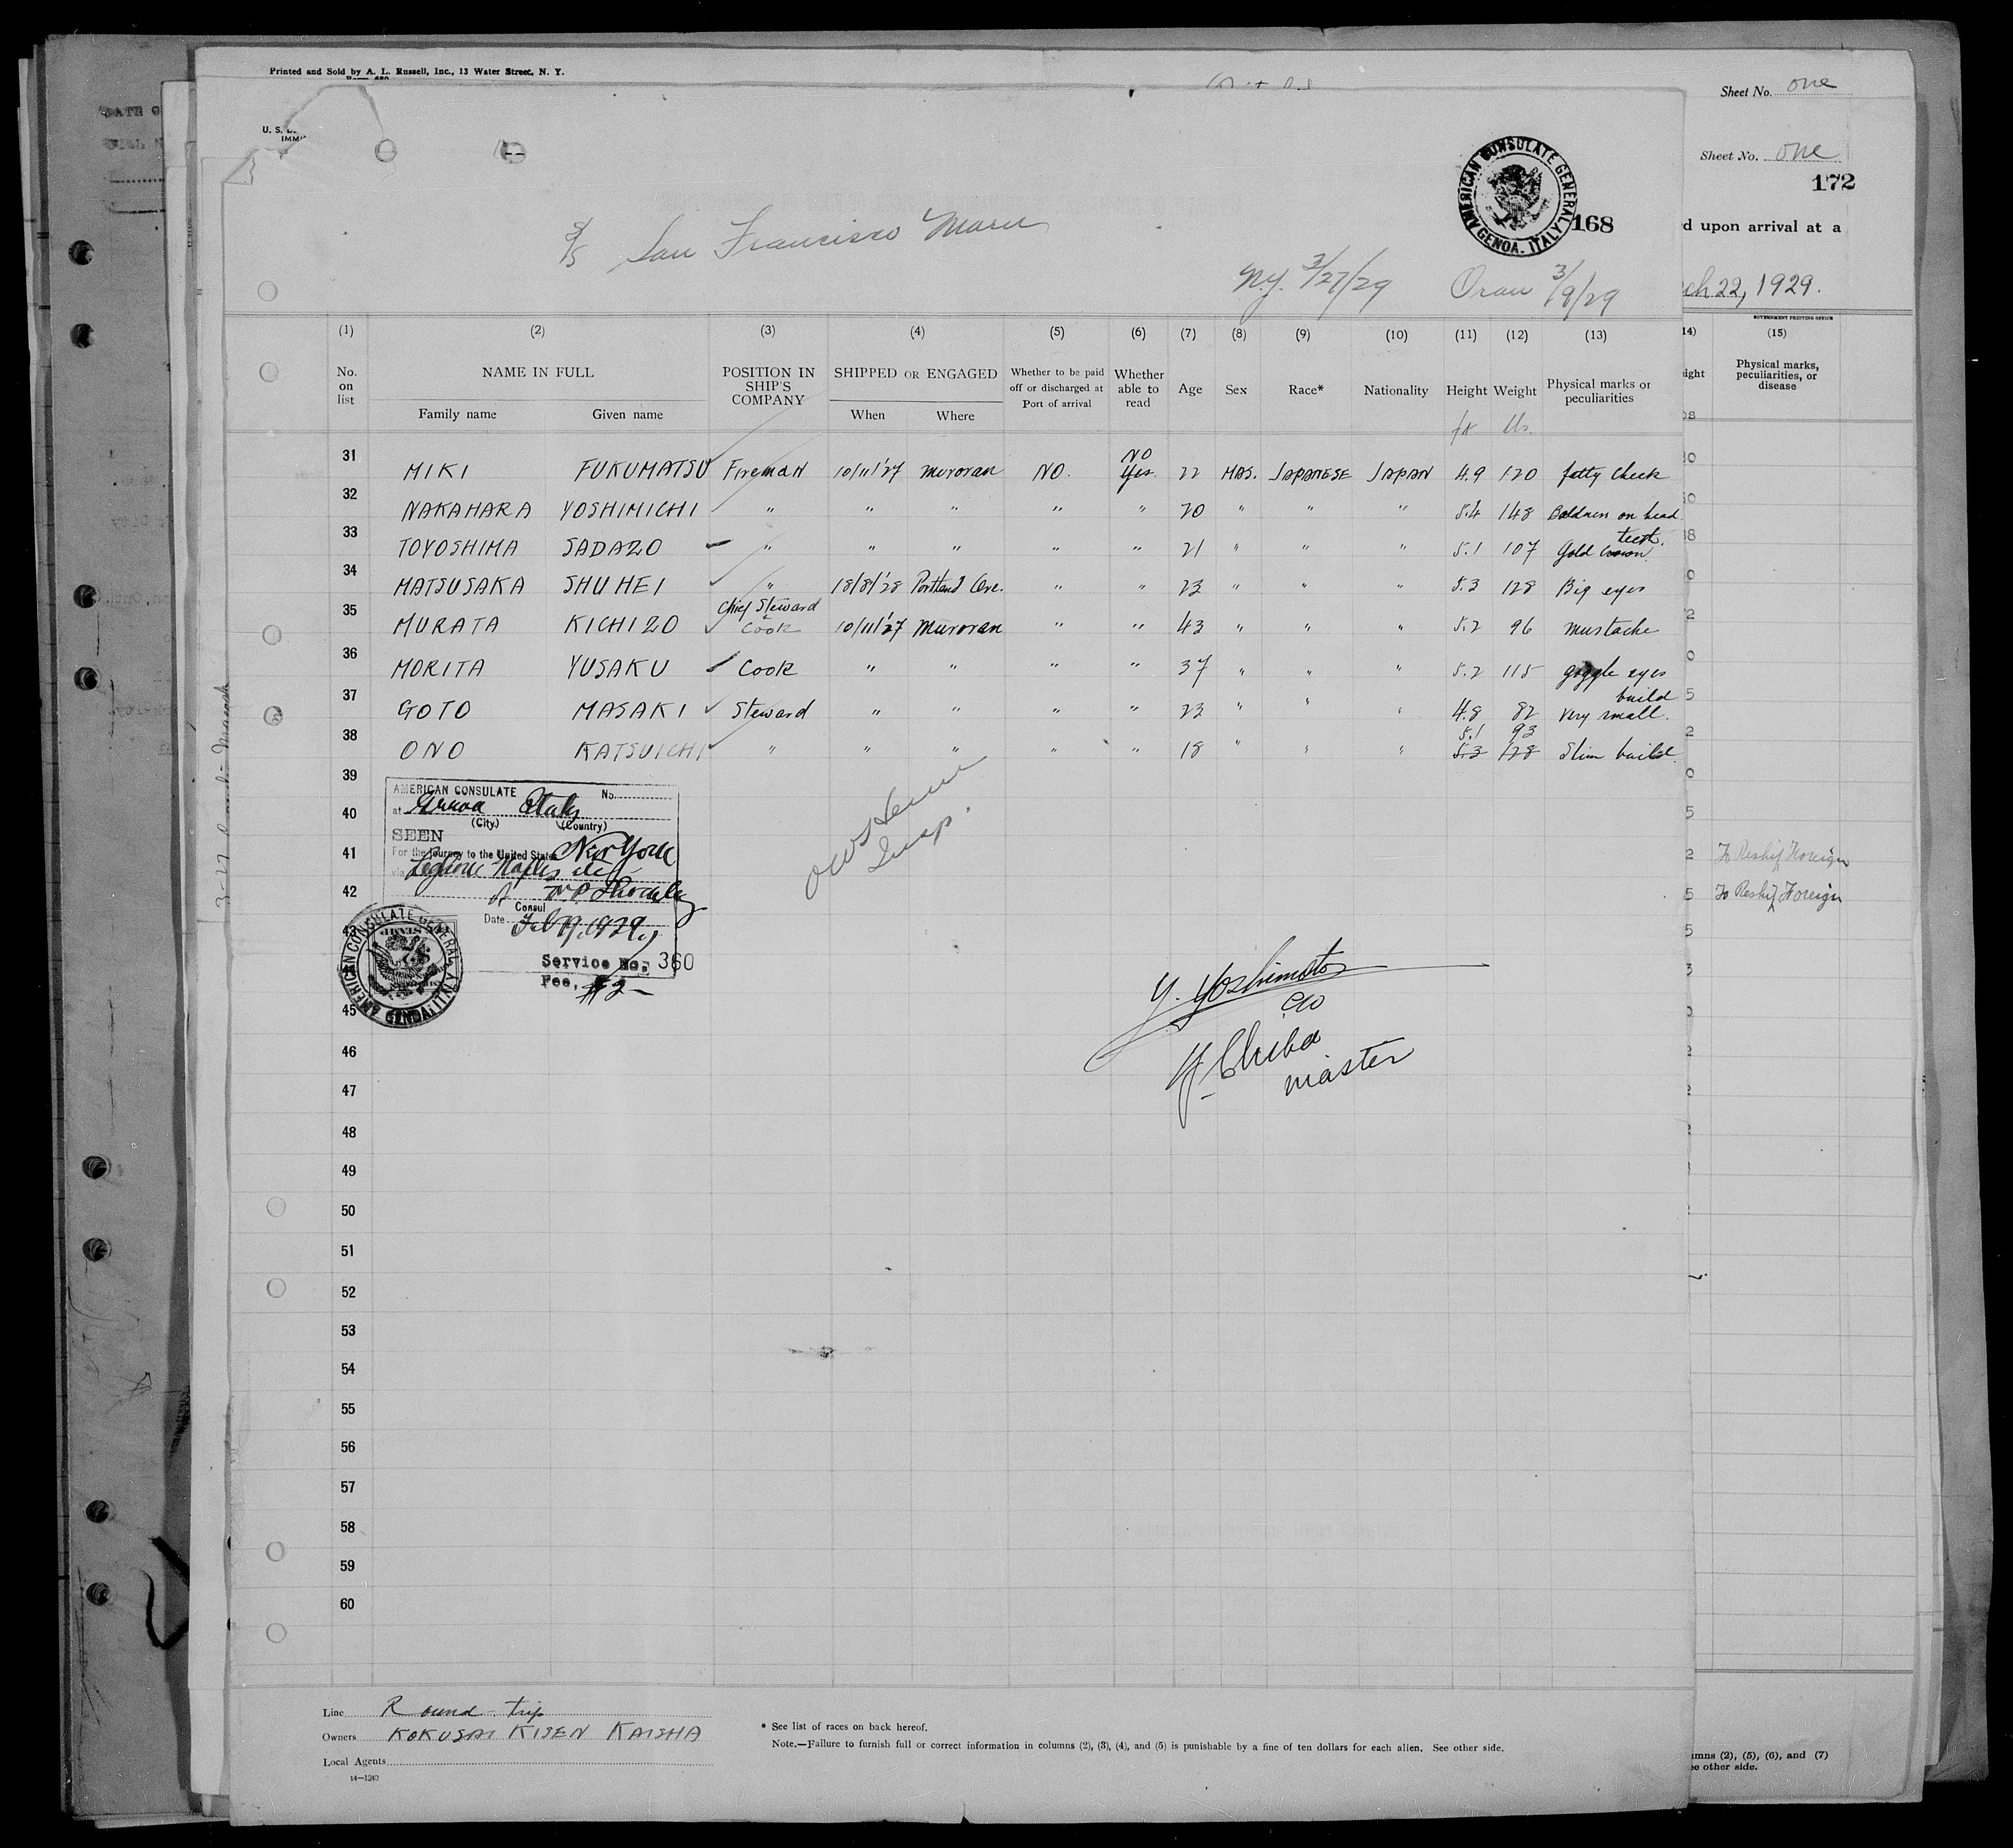 Printed and Sold by A. L. Russell, Inc., 13 Water Street, N. Y.
Sheet No. one
U. S.
IMMI
Sheet No. one
172
AMERICAN CONSULATE GENERAL
GENOA, ITALY
168
d upon arrival at a
S/S San Francisco Maru
N.Y. 3/27/29 Oran 3/9/29
ch 22, 1929.
GOVERNMENT PRINTING OFFICE
(1) (2) (3) (4) (5) (6) (7) (8) (9) (10) (11) (12) (13) 14) (15)
No. on list NAME IN FULL POSITION IN SHIP'S COMPANY SHIPPED OR ENGAGED Whether to be paid off or discharged at Port of arrival Whether able to read Age Sex Race* Nationality Height Weight Physical marks or peculiarities
Physical marks, peculiarities, or disease
Family name Given name When Where
ft lbs.
31 MIKI FUKUMATSU Fireman 10/11/'27 Mororan NO. NO Yes. 22 MAS. JAPANESE JAPAN 4.9 120 fatty cheek
32 NAKAHARA YOSHIMICHI " " " " " 20 " " " 5.4 148 Baldness on head
33 TOYOSHIMA SADAZO " " " " " 21 " " " 5.1 107 Gold crown teeth.
34 MATSUSAKA SHUHEI " 18/8/'28 Portland Ore. " " 23 " " " 5.3 128 Big eyes
35 MURATA KICHIZO Chief Steward & Cook 10/11/'27 Mururan " " 43 " " " 5.2 96 mustache
36 MORITA YUSAKU Cook " " " " 37 " " " 5.2 115 goggle eyes
37 GOTO MASAKI Steward " " " " 23 " " " 4.8 82 very small build.
5.1 93
38 ONO KATSUICHI " " " " " 18 " " " 5.3 128 Slim build.
39
40
41
42
43
45
46
47
48
49
50
51
52
53
54
55
56
57
58
59
60
AMERICAN CONSULATE No.
at Genoa Italy
(City) (Country)
SEEN
For the journey to the United States New York
via Leghorn Naples etc
Consul
Date Feb 19, 1929.
Service No. 360
Fee, $2-
AMERICAN CONSULATE GENERAL
GENOA, ITALY
To Reship Foreign
To Reship Foreign
Y. Yoshimoto
C/O
Y. Chiba
master
Line Round-trip
Owners KOKUSAI KISEN KAISHA
Local Agents
14—1240
* See list of races on back hereof.
Note.—Failure to furnish full or correct information in columns (2), (3), (4), and (5) is punishable by a fine of ten dollars for each alien. See other side.
umns (2), (5), (6), and (7)
ee other side.